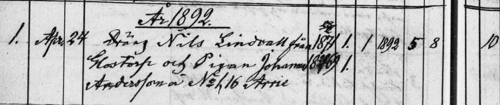 År 1892.
1. Apr. 24 Dräng Nils Lindvall från 1871 1. 1 1892 5 8 10
Glostorp och Pigan Johanna 1. 
Andersson å No 16 Arrie